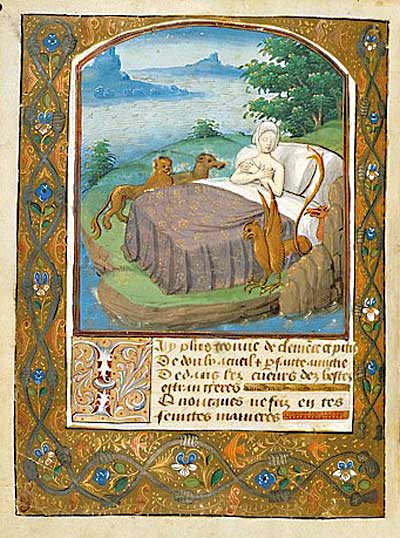 I ay plus trouue de clemēce et pitie
De doulx acueil & pfaicte amitie
Dedans les cueurs des bestes
estrangeres
oncques ne en tes
faintes manieres